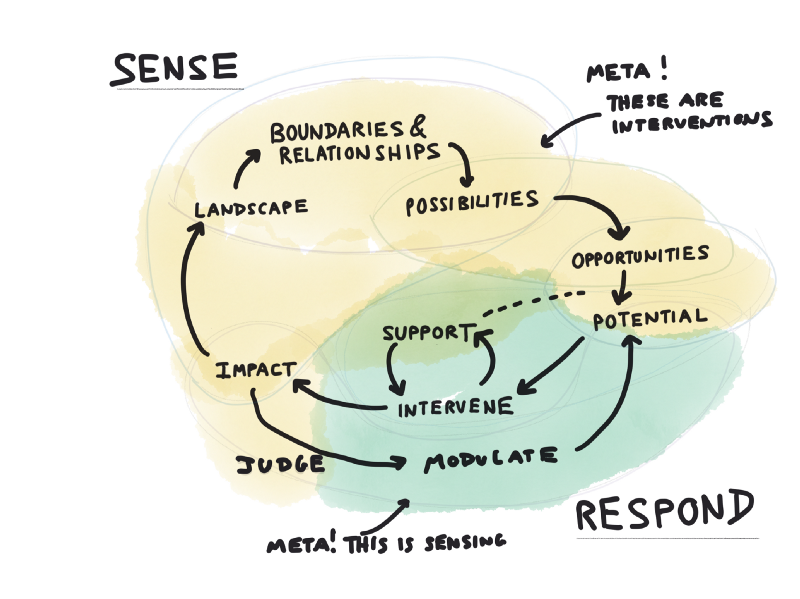 SENSE
META!
THESE ARE
INTERVENTIONS
BOUNDARIES &
RELATIONSHIPS
LANDSCAPE
POSSIBILITIES
OPPORTUNITIES
POTENTIAL
SUPPORT
IMPACT
INTERVENE
JUDGE
MODULATE
RESPOND
META! THIS IS SENSING